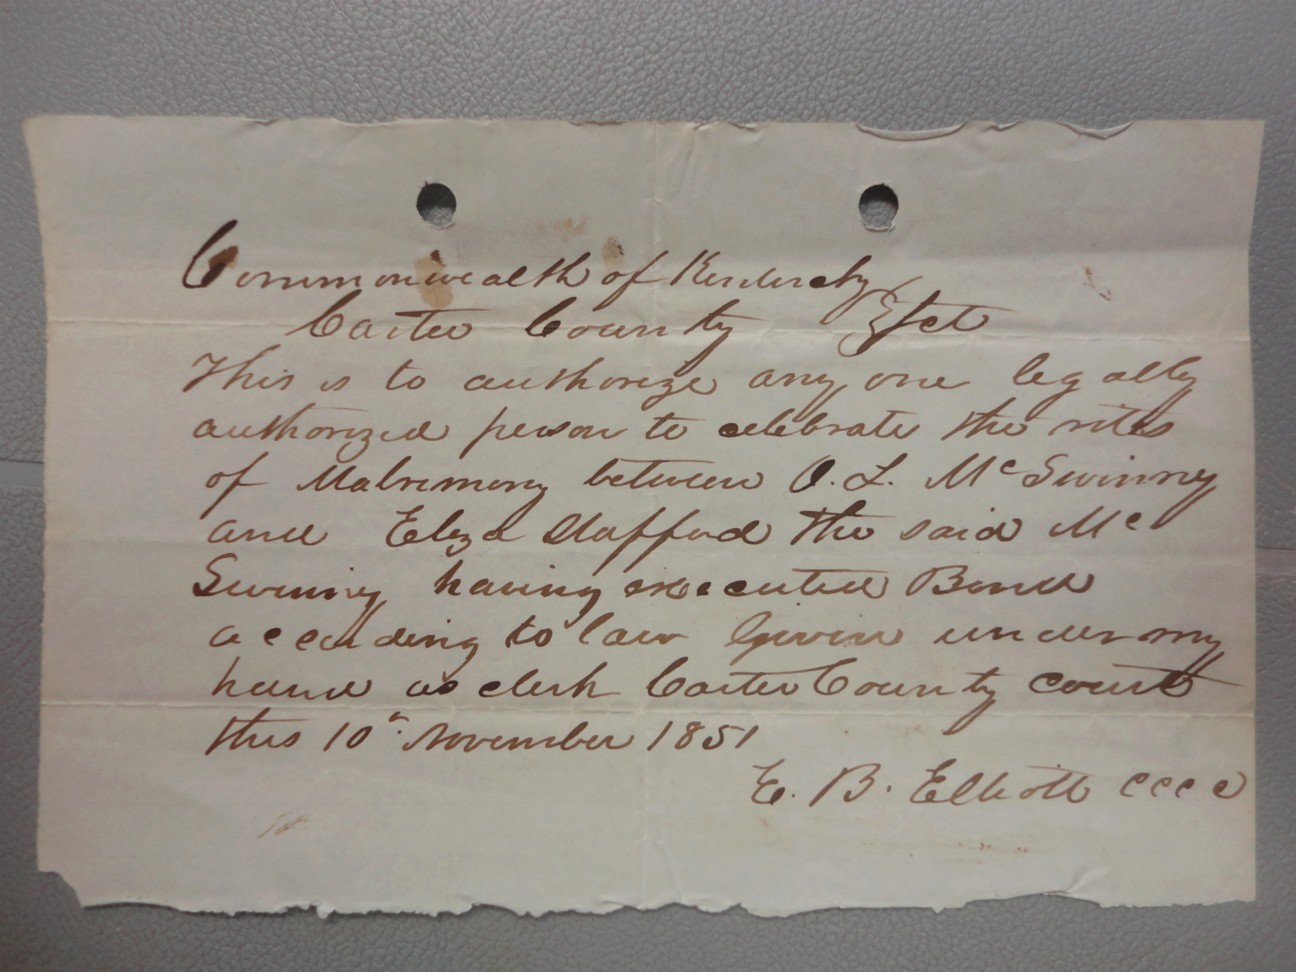 Commonwealth of Kentucky
Carter County } Sct
This is to authorize any one legally
authorized person to celebrate the rites
of Matrimony between O. L. McSwinney
and Eliza Stafford the said Mc
Swinney having executed Bond
according to law Given under my
hand as clerk Carter County court
this 10th November 1851
E. B. Elliott cccc